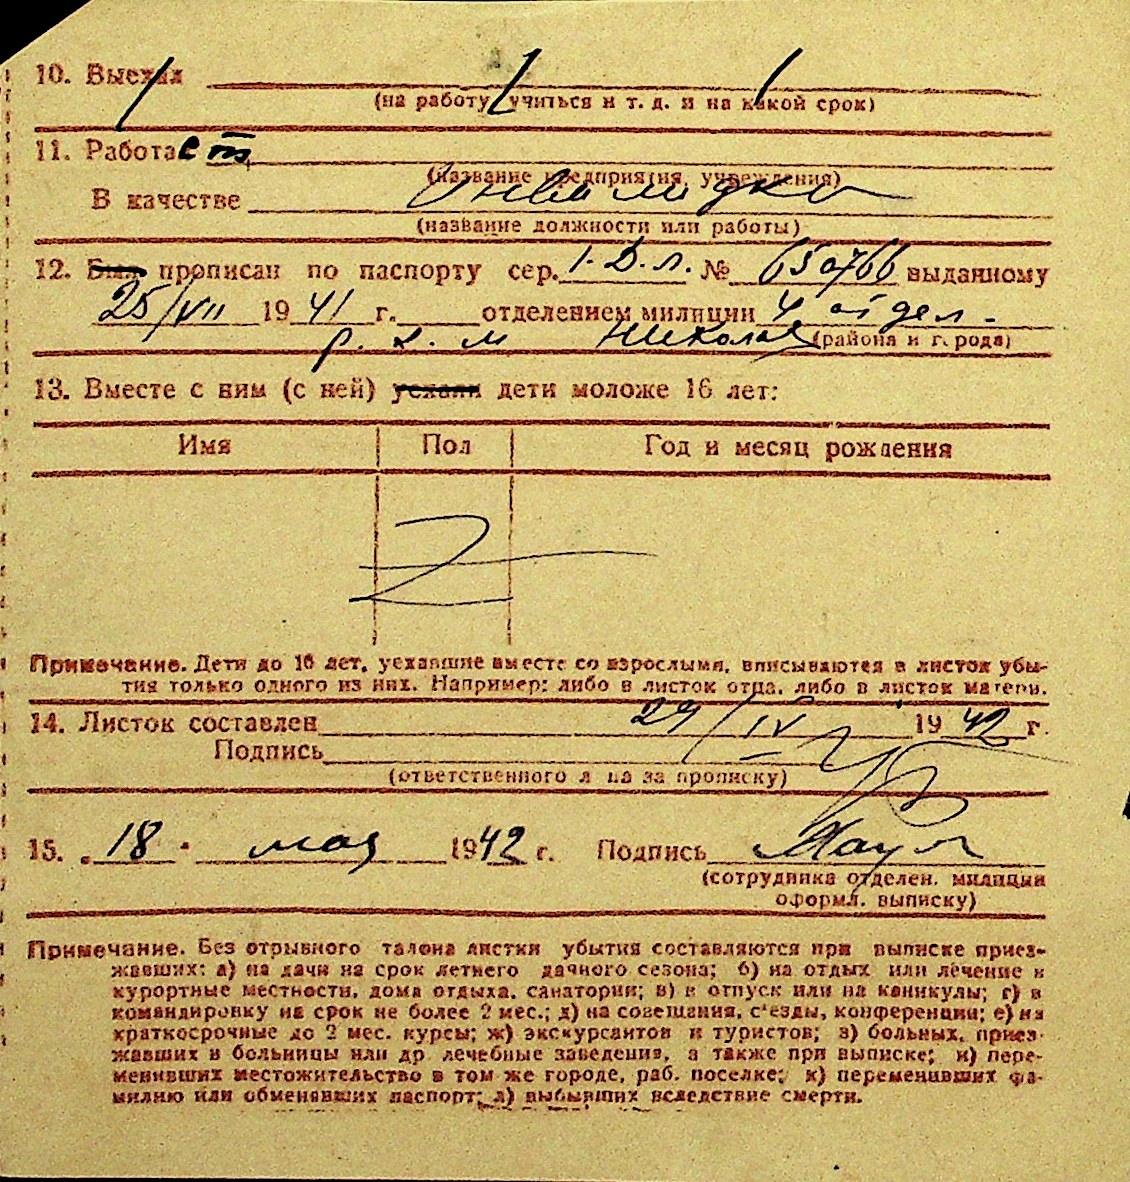 10. Выехал
(на работу, учиться и т. д. и на какой срок)
11. Работает
(название предприятия, учреждения)
В качестве Инвалидка
(название должности или работы)
12. Был прописан по паспорту сер. 1-Д.Л. № 650766 выданному
25/VII 1941 г. отделением милиции 4 отдел.
р. к. м Николаев (района и города)
13. Вместе с ним (с ней) уехали дети моложе 16 лет:
Имя Пол Год и месяц рождения
Z
Примечание. Дети до 16 лет, уехавшие вместе со взрослыми, вписываются в листок убы-
тия только одного из них. Например: либо в листок отца, либо в листок матери.
14. Листок составлен 29/IV 1942 г.
Подпись
(ответственного лица за прописку)
15. „18" мая 1942 г. Подпись
(сотрудника отделен. милиции
оформл. выписку)
Примечание. Без отрывного талона листки убытия составляются при выписке приез-
жавших: а) на дачи на срок летнего дачного сезона; б) на отдых или лечение в
курортные местности, дома отдыха, санатории; в) в отпуск или на каникулы; г) в
командировку на срок не более 2 мес.; д) на совещания, с'езды, конференции; е) на
краткосрочные до 2 мес. курсы; ж) экскурсантов и туристов; з) больных, приез-
жавших в больницы или др лечебные заведения, а также при выписке; и) пере-
менивших местожительство в том же городе, раб. поселке; к) переменивших фа-
милию или обменявших паспорт; л) выбывших вследствие смерти.